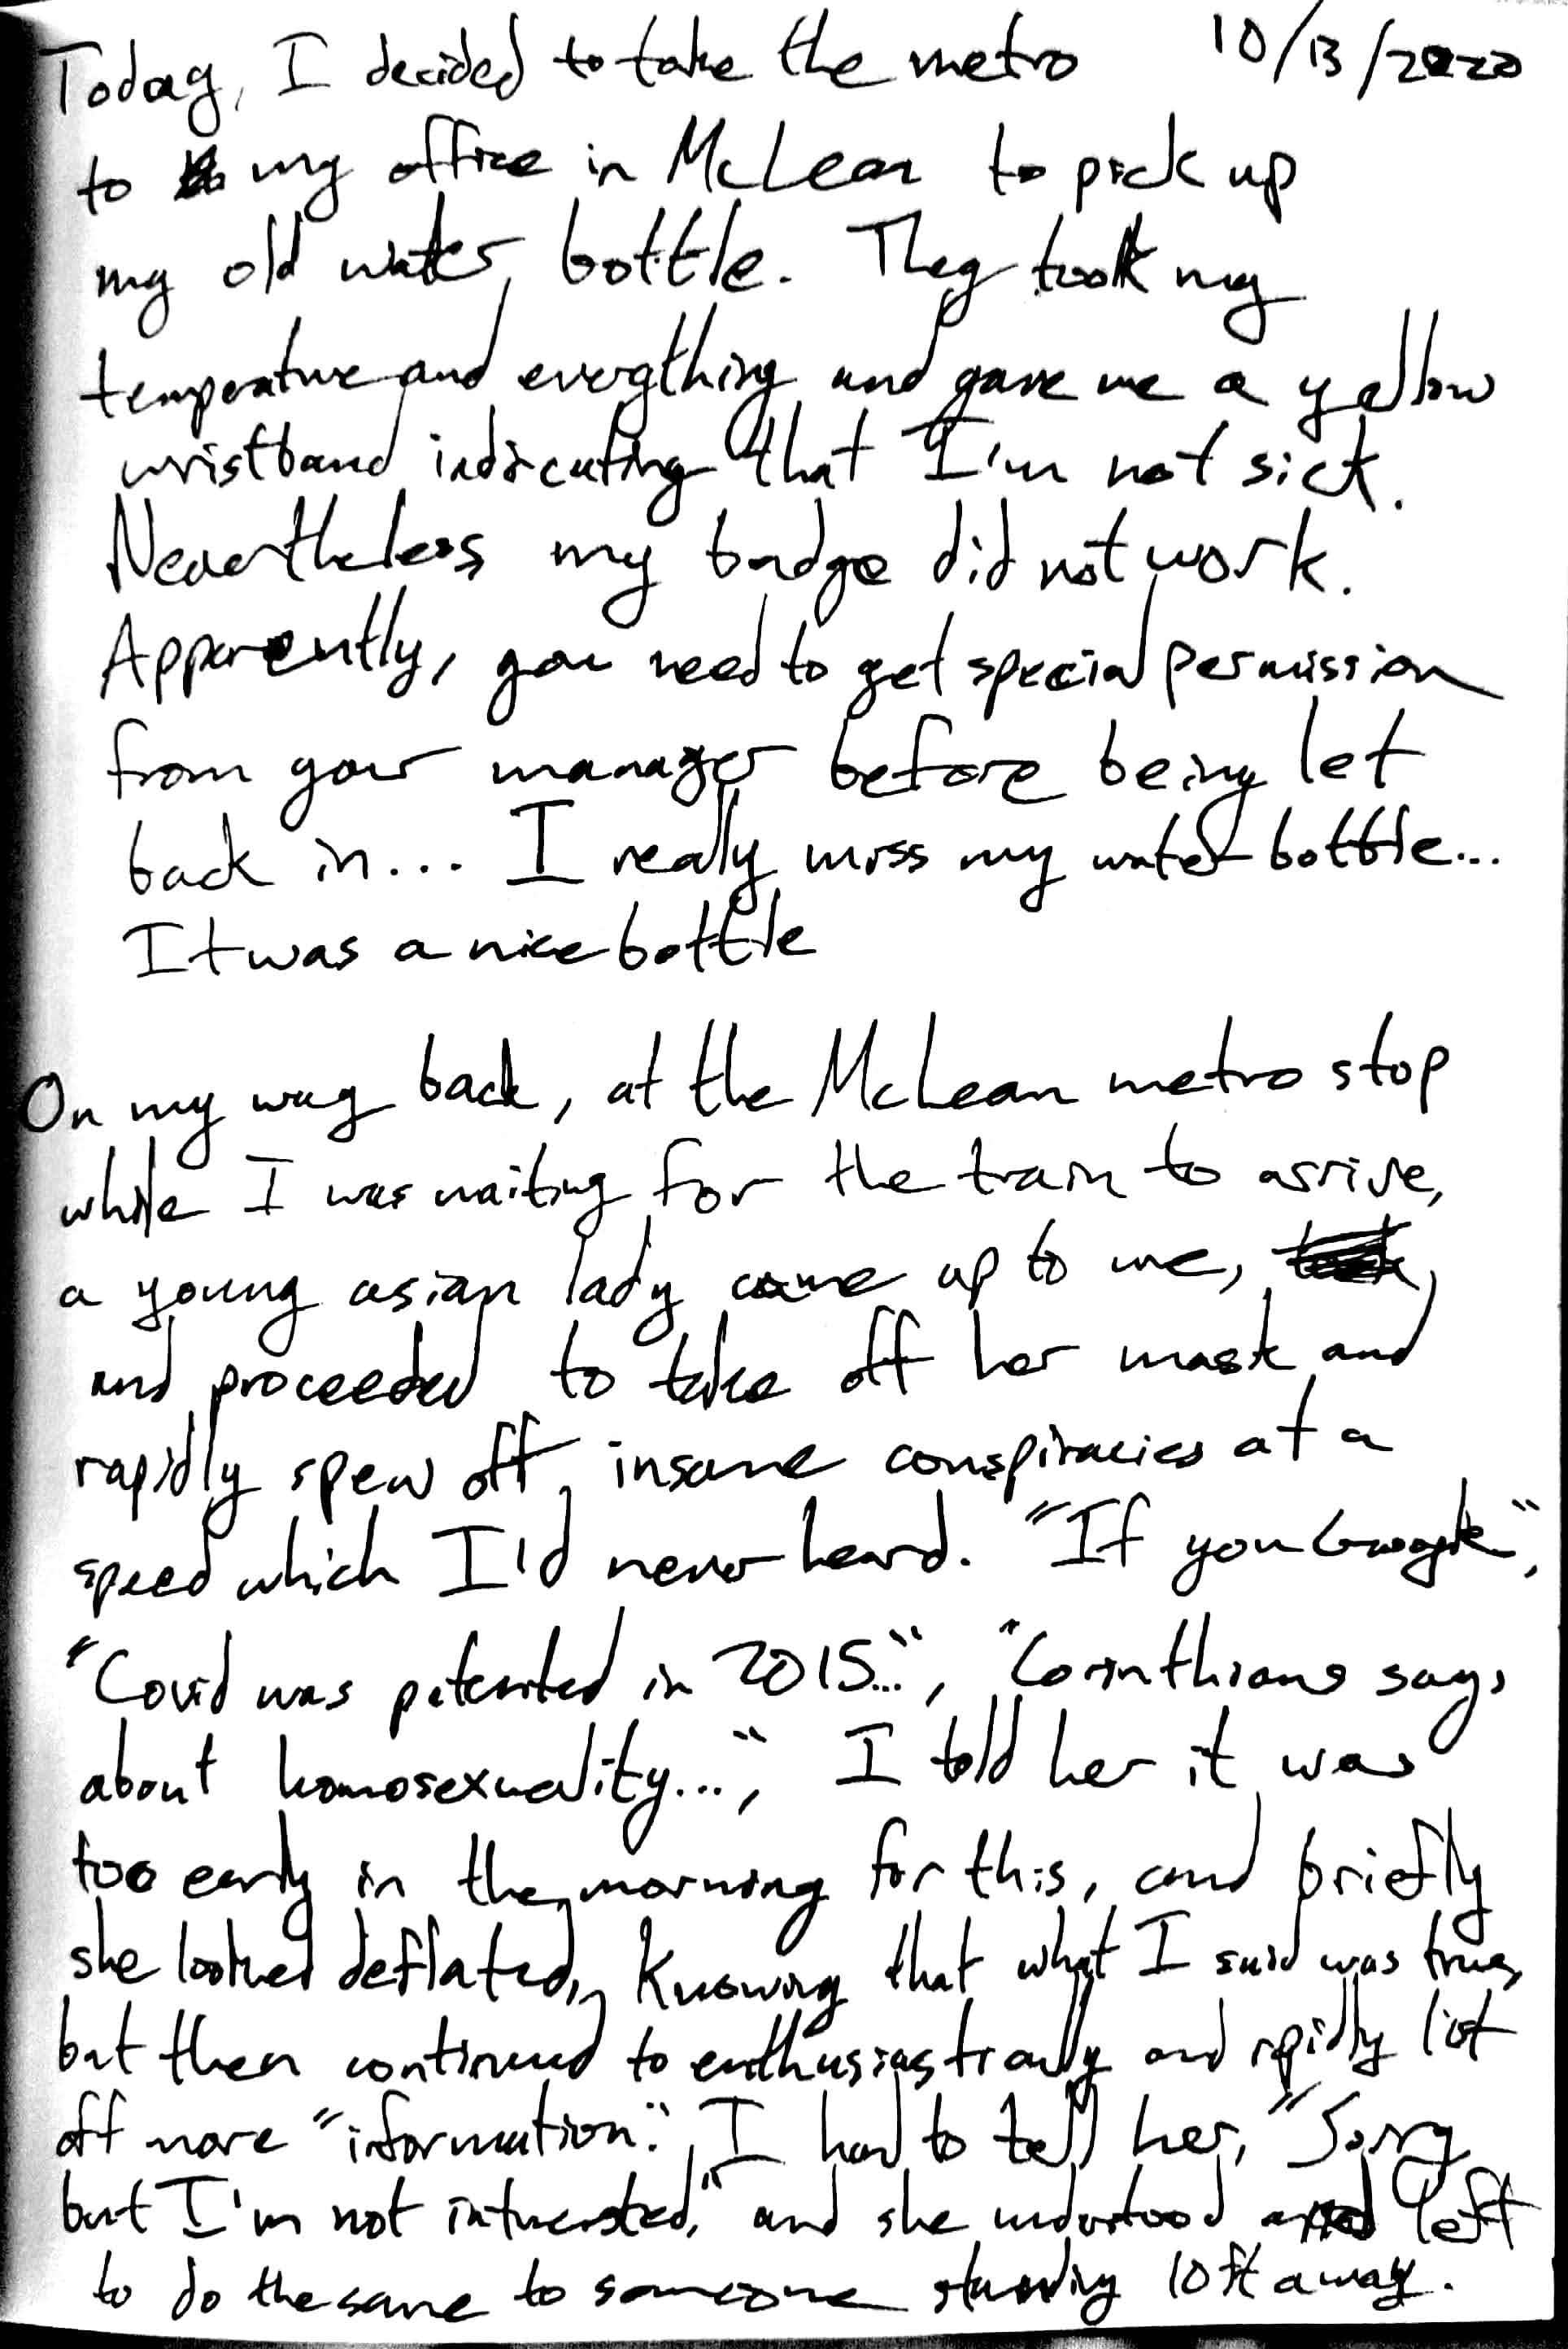 Today, I decided to take the metro 10/13/2020
to my office in McLean to pick up
my old water bottle. They took my
temperature and everything and gave me a yellow
wristband indicating that I'm not sick.
Nevertheless my badge did not work.
Apparently, you need to get special permission
from your manager before being let
back in... I really miss my water bottle...
It was a nice bottle
On my way back, at the McLean metro stop
while I was waiting for the train to arrive,
a young asian lady came up to me,
and proceeded to take off her mask and
rapidly spew off insane conspiracies at a
speed which I'd never heard. "If you Google",
"Covid was patented in 2015...", "Corinthians says
about homosexuality...", I told her it was
too early in the morning for this, and briefly
she looked deflated, knowing that what I said was true,
but then continued to enthusiastically and rapidly list
off more "information". I had to tell her, "Sorry
but I'm not interested," and she understood and left
to do the same to someone standing 10 ft away.